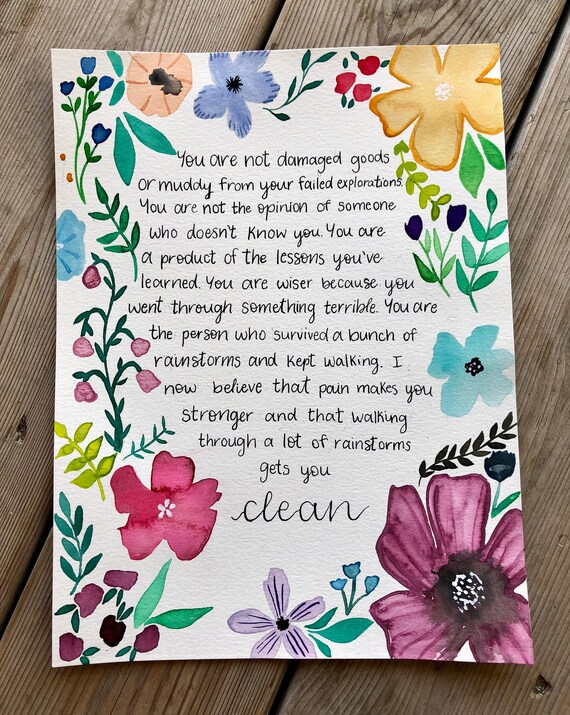 You are not damaged goods
or muddy from your failed explorations.
You are not the opinion of someone
who doesn't know you. You are
a product of the lessons you've
learned. You are wiser because you
went through something terrible. You are
the person who survived a bunch of
rainstorms and kept walking. I
now believe that pain makes you
stronger and that walking
through a lot of rainstorms
gets you
clean